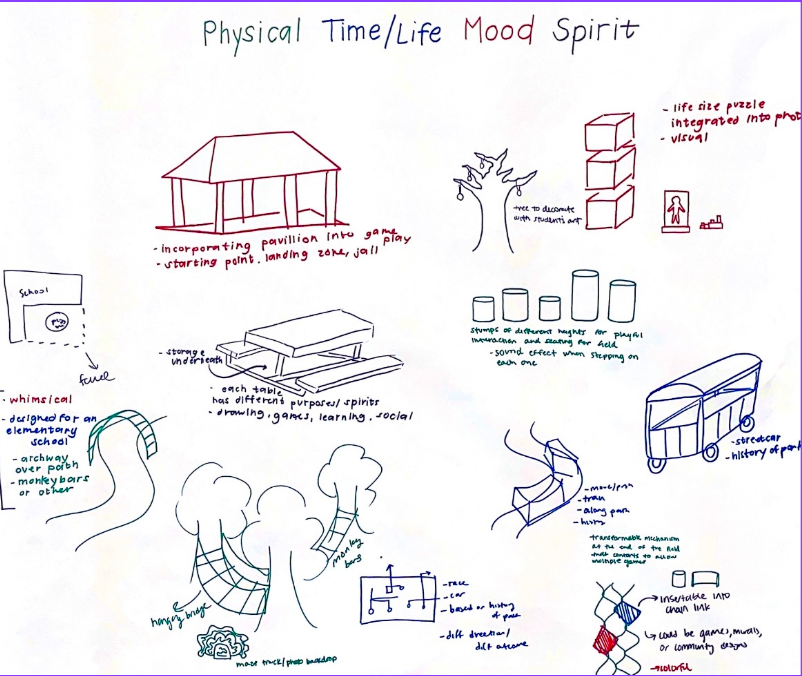 Physical Time/Life Mood Spirit
- life size puzzle
integrated into phot
- visual
tree to decorate
with student's art
- incorporating pavillion into game
play
- starting point, landing zone, jail
School
fence
stumps of different heights for playful
interaction and seating for field
- sound effect when stepping on
each one
- storage
underneath
- each table
has different purposes/spirits
- drawing, games, learning, social
- whimsical
- designed for an
elementary
school
- archway
over path
- monkey bars
or other
- streetcar
- history of park
- move/push
- train
- along park
- history
monkey
bars
hanging bridge
transformable mechanism
at the end of the field
that converts to allow
multiple games
- race
- car
- based on history
of park
- diff direction/
diff outcome
insertable into
chain link
could be games, murals,
or community designs
colorful
maze track/photo backdrop